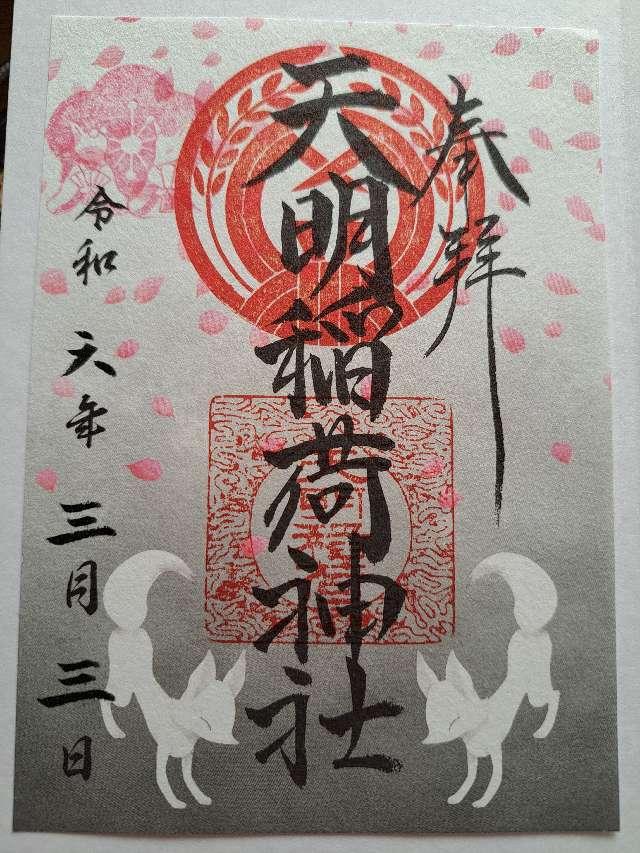 奉拝
天明稲荷神社
令和六年三月三日